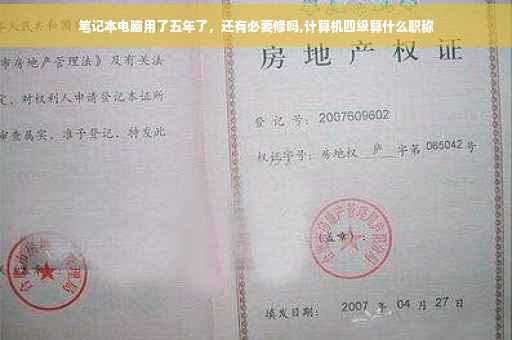 笔记本电脑用了五年了，还有必要修吗,计算机四级算什么职称
人民共和国
市房地产管理法》及有关法
定，对权利人申请登记本证所
审查属实，准予登记，特发此
房地产权证
登记号：2007609602
权证字号：房地权 庐 字第 085042 号
(盖章)：
填发日期： 2007 年 04 月 27 日